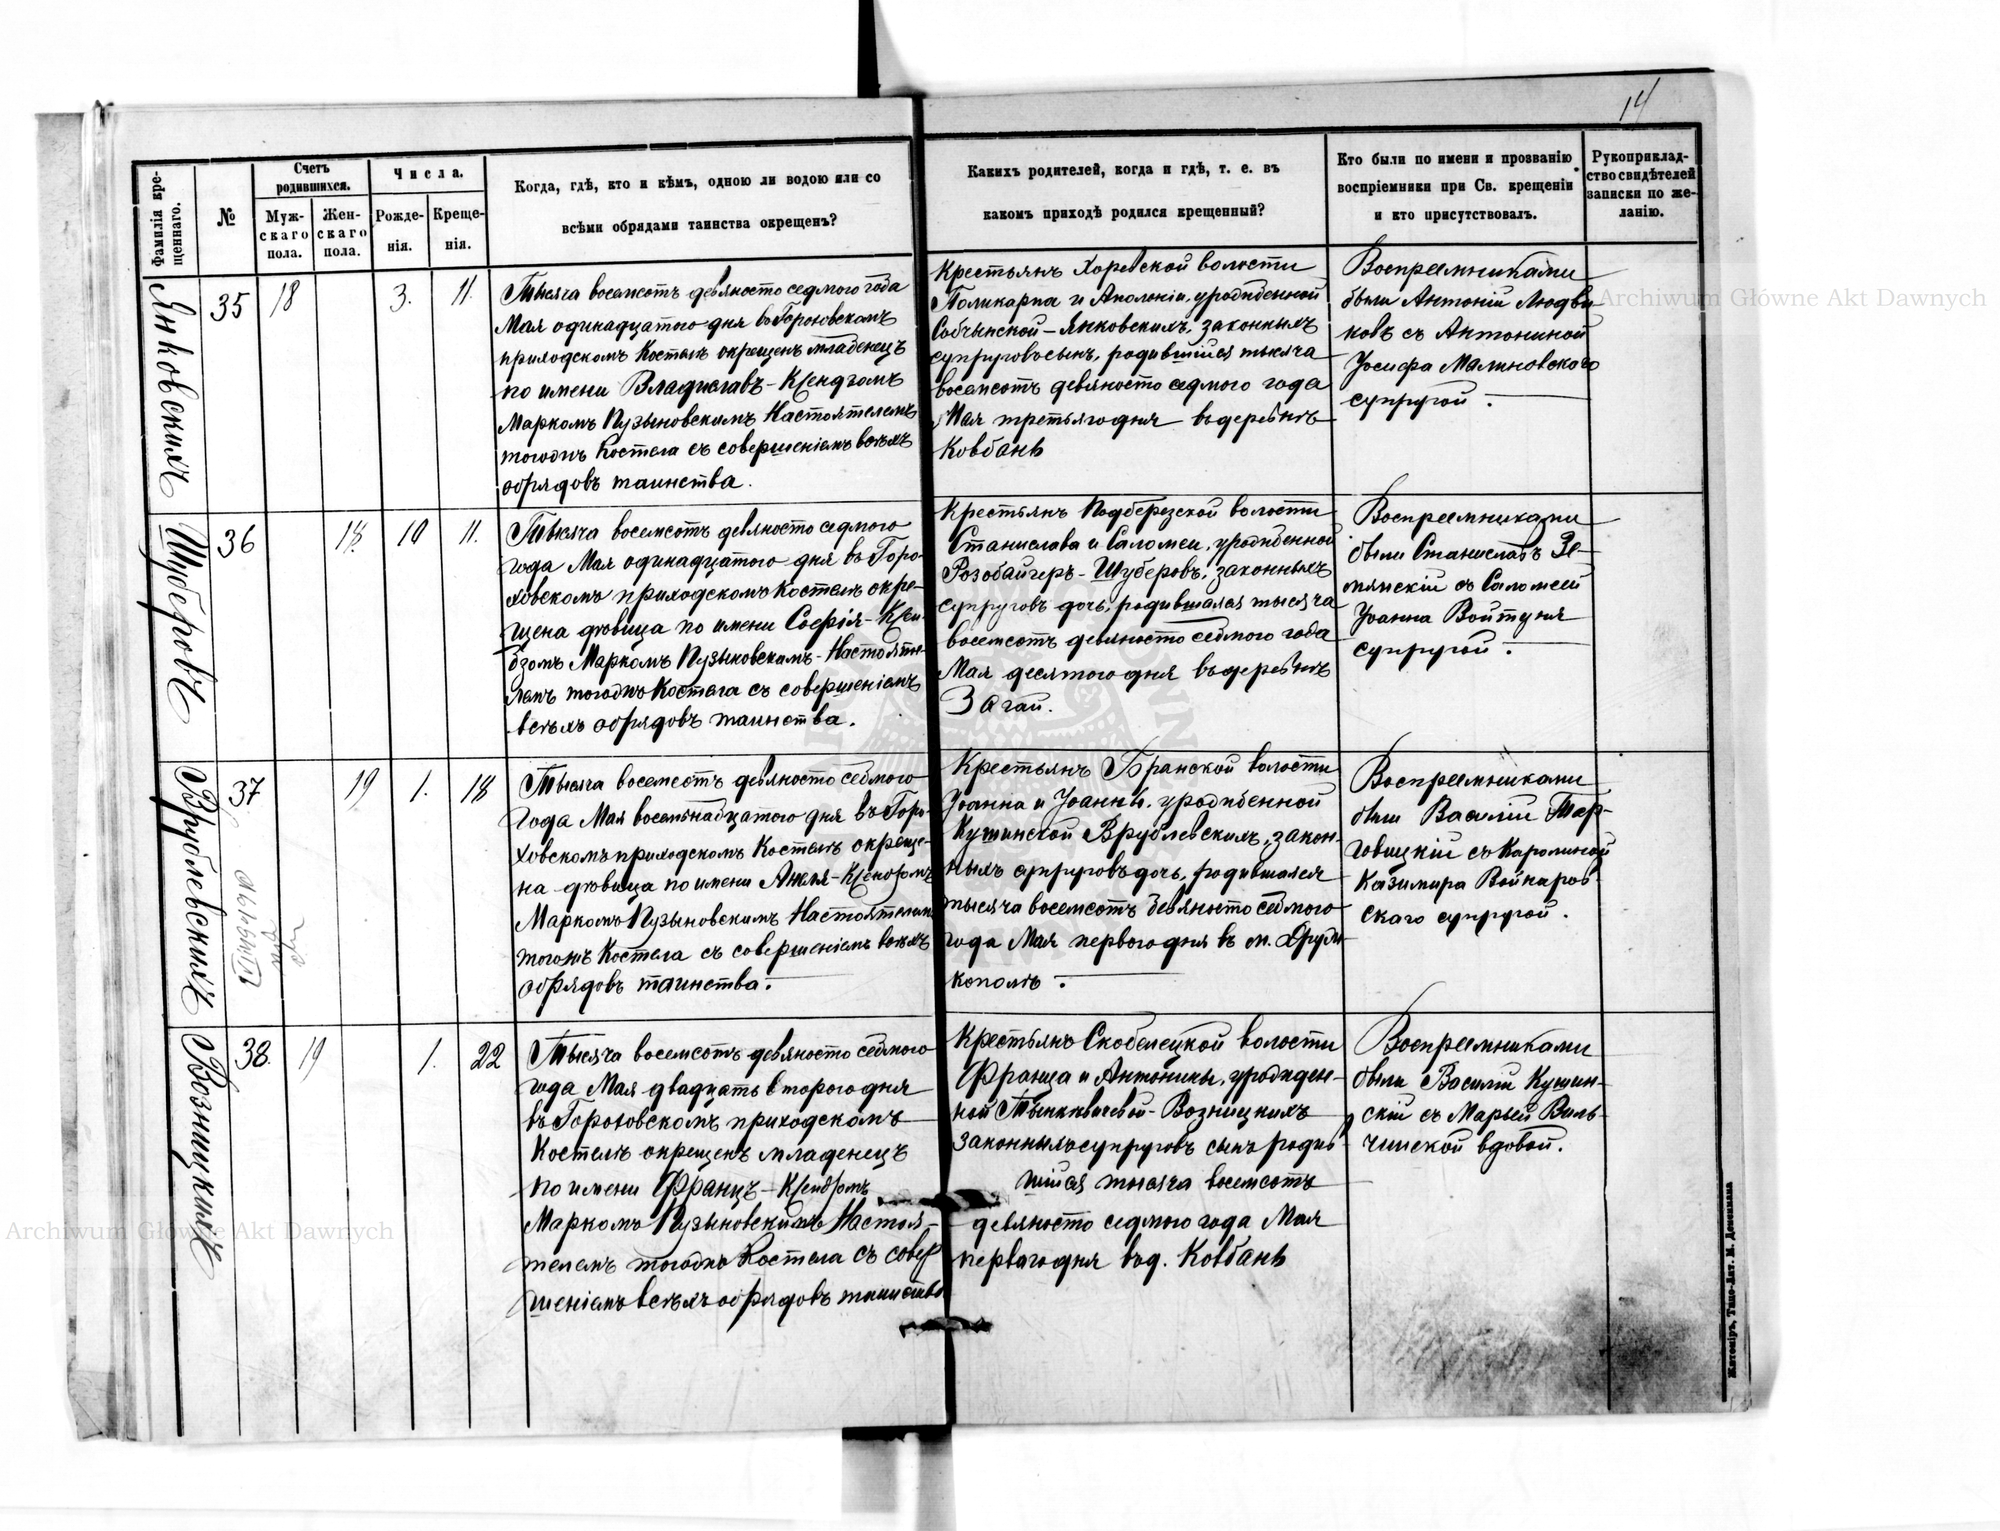 14
Фамилія кре-
щеннаго.
№
Счетъ
родившихся.
Муж-
скаго
пола.
Жен-
скаго
пола.
Числа.
Рожде-
нія.
Креще-
нія.
Когда, гдѣ, кто и кѣмъ, одною ли водою или со
всѣми обрядами таинства окрещенъ?
Какихъ родителей, когда и гдѣ, т. е. въ
какомъ приходѣ родился крещенный?
Кто были по имени и прозванію
воспріемники при Св. крещеніи
и кто присутствовалъ.
Рукоприклад-
ство свидѣтелей
записки по же-
ланію.
Янковскихъ
35
18
3.
11.
Тысяча восемсотъ девяносто седмого года
Мая одинадцатого дня въ Гороховскомъ
приходскомъ Костелѣ окрещенъ младенецъ
по имени Владиславъ - Ксендзомъ
Маркомъ Пузыновскимъ Настоятелемъ
тогожъ Костела съ совершеніемъ всѣхъ
обрядовъ таинства.
Крестьянъ Хоревской волости
Поликарпа и Аполоніи, урожденной
Собчынской - Янковскихъ, законныхъ
супруговъ сынъ, родившійся тысяча
восемсотъ девяносто седмого года
Мая третьяго дня въ деревнѣ
Ковбань
Воспреемниками
были Антоній Людви
ковъ съ Антониной
Іосифа Малиновского
супругой.
Шуберовъ
36
18.
10
11.
Тысяча восемсотъ девяносто седмого
года Мая одинадцатого дня въ Горо-
ховскомъ приходскомъ Костелѣ окре-
щена дѣвица по имени Софія - Ксен-
дзомъ Маркомъ Пузыновскимъ - Настояте-
лемъ тогожъ Костела съ совершеніемъ
всѣхъ обрядовъ таинства.
Крестьянъ Подберезской волости
Станислава и Саломеи, урожденной
Розобайгеръ - Шуберовъ, законныхъ
супруговъ дочь, родившаяся тысяча
восемсотъ девяносто седмого года
Мая десятого дня въ деревнѣ
Загаи.
Воспреемниками
были Станиславъ Зе-
мянскій съ Саломеей
Іоанна Войтуня
супругой.
Врублевскихъ
37.
19
1.
18
Тысяча восемсотъ девяносто седмого
года Мая восемьнадцатого дня въ Горо-
ховскомъ приходскомъ Костелѣ окреще-
на дѣвица по имени Анеля - Ксендзомъ
Маркомъ Пузыновскимъ Настоятелемъ
тогожъ Костела съ совершеніемъ всѣхъ
обрядовъ таинства.
Крестьянъ Бранской волости
Іоанна и Іоанны, урожденной
Кушинской Врублевскихъ, закон-
ныхъ супруговъ дочь, родившаяся
тысяча восемсотъ девяносто седмого
года Мая первого дня въ м. Друж-
кополѣ.
Воспреемниками
были Василій Тар-
говицкій съ Каролиной
Казимира Войнаров-
скаго супругой.
Возницкихъ
38.
19
1.
22
Тысяча восемсотъ девяносто седмого
года Мая двадцать второго дня
въ Гороховскомъ приходскомъ
Костелѣ окрещенъ младенецъ
по имени Францъ - Ксендзомъ
Маркомъ Пузыновскимъ Настоя-
телемъ тогожъ Костела съ совер
шеніемъ всѣхъ обрядовъ таинства
Крестьянъ Скобелецкой волости
Франца и Антонины, урожден-
ной Возницкихъ
законныхъ супруговъ сынъ родив-
шійся тысяча восемсотъ
девяносто седмого года Мая
первого дня въ д. Ковбань
Воспреемниками
были Василій Кушин-
скій съ Марьей Виль-
чинской вдовой.
Житоміръ, Типо-Лит. М. Дененмана
Archiwum Główne Akt Dawnych
Archiwum Główne Akt Dawnych